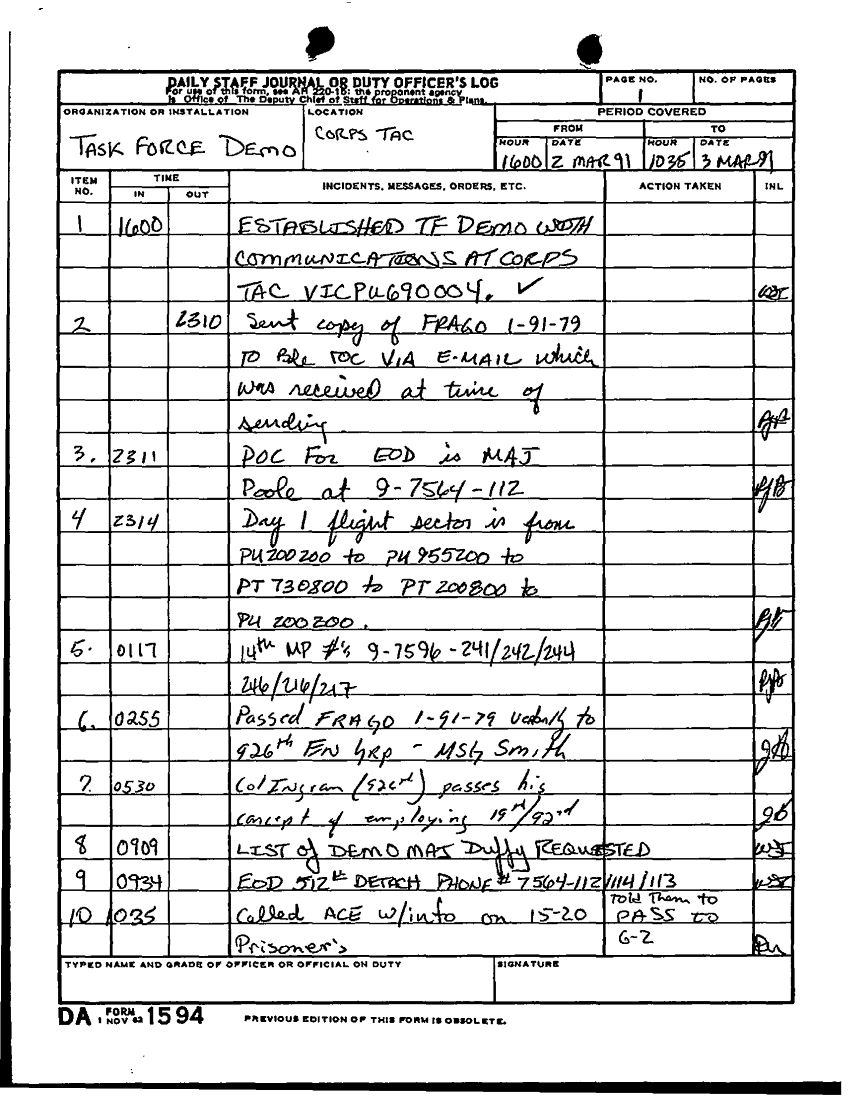 DAILY STAFF JOURNAL OR DUTY OFFICER'S LOG
For use of this form, see AR 220-15: the proponent agency
is Office of The Deputy Chief of Staff for Operations & Plans.
PAGE NO.
1
NO. OF PAGES
ORGANIZATION OR INSTALLATION
TASK FORCE DEMO
LOCATION
CORPS TAC
PERIOD COVERED
FROM TO
HOUR DATE HOUR DATE
1600 2 MAR 91 1035 3 MAR 91
ITEM NO. TIME IN OUT INCIDENTS, MESSAGES, ORDERS, ETC. ACTION TAKEN INL
1 1600 ESTABLISHED TF DEMO WITH
COMMUNICATIONS AT CORPS
TAC VIC PU690004. ✓
2 2310 Sent copy of FRAGO 1-91-79
TO TOC VIA E-MAIL which
was received at time of
sending.
3. 2311 POC For EOD is MAJ
Poole at 9-7564-112
4 2314 Day 1 flight sector is from
PU200200 to PU955200 to
PT 730800 to PT 200800 to
PU 200200.
5. 0117 14th MP #'s 9-7596-241/242/244
246/216/217
6. 0255 Passed FRAGO 1-91-79 verbally to
926th EN GRP - MSG Smith
7. 0530 Col Ingram (926th) passes his
concept of employing 19th/92nd
8 0909 LIST of DEMO MAJ Duffy REQUESTED
9 0934 EOD 512th DETACH PHONE # 7564-112/114/113
10 1035 Called ACE w/info on 15-20 Told Them to
PASS to
Prisoner's G-2
TYPED NAME AND GRADE OF OFFICER OR OFFICIAL ON DUTY
SIGNATURE
DA FORM 1 NOV 62 1594 PREVIOUS EDITION OF THIS FORM IS OBSOLETE.